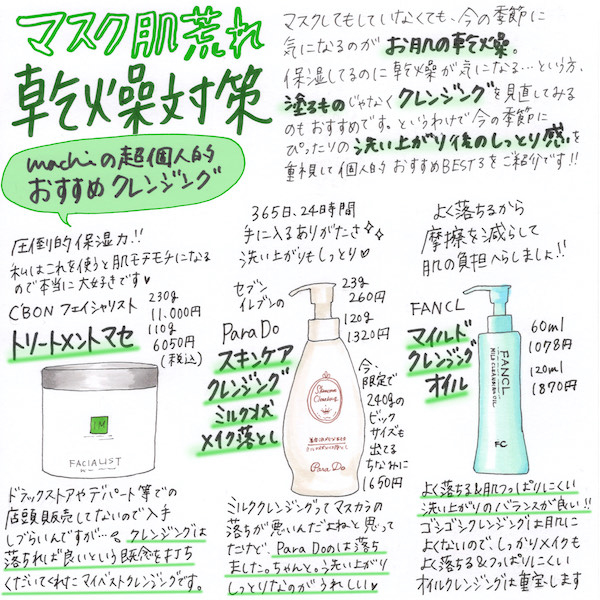 マスク肌荒れ
乾燥対策
machiの超個人的
おすすめクレンジング
マスクしてもしていなくても、今の季節に
気になるのがお肌の乾燥。
保湿してるのに乾燥が気になる…という方、
塗るものじゃなくクレンジングを見直してみる
のもおすすめです。というわけで今の季節に
ぴったりの洗い上がり後のしっとり感を
重視して個人的おすすめBEST3をご紹介です!!
圧倒的保湿力!!
私はこれを使うと肌モチモチになる
ので本当に大好きです♥
C'BON フェイシャリスト
トリートメントマセ
230g
11,000円
110g
6050円
(税込)
FACIALIST
ドラックストアやデパート等での
店頭販売してないので入手
しづらいんですが…。クレンジングは
落ちれば良いという概念を打ち
くだいてくれたマイベストクレンジングです。
365日、24時間
手に入るありがたさ
洗い上がりもしっとり♥
セブン
イレブンの
ParaDo
スキンケア
クレンジング
ミルク状
メイク落とし
23g
260円
120g
1320円
今、
限定で
240gの
ビック
サイズも
出てる
ちなみに
1650円
Skincare
Cleansing
ParaDo
ミルククレンジングってマスカラの
落ちが悪いんだよねと思って
たけど、ParaDoのは落ち
ました。ちゃんと。洗い上がり
しっとりなのがうれしい♥
よく落ちるから
摩擦を減らして
肌の負担へらしました!!
FANCL
マイルド
クレンジング
オイル
60ml
1078円
120ml
1870円
FANCL
MILD CLEANSING OIL
FC
よく落ちる&肌つっぱりにくい
洗い上がりのバランスが良い!!
ゴシゴシクレンジングは肌に
よくないので、しっかりメイクも
よく落ちる&つっぱりにくい
オイルクレンジングは重宝します